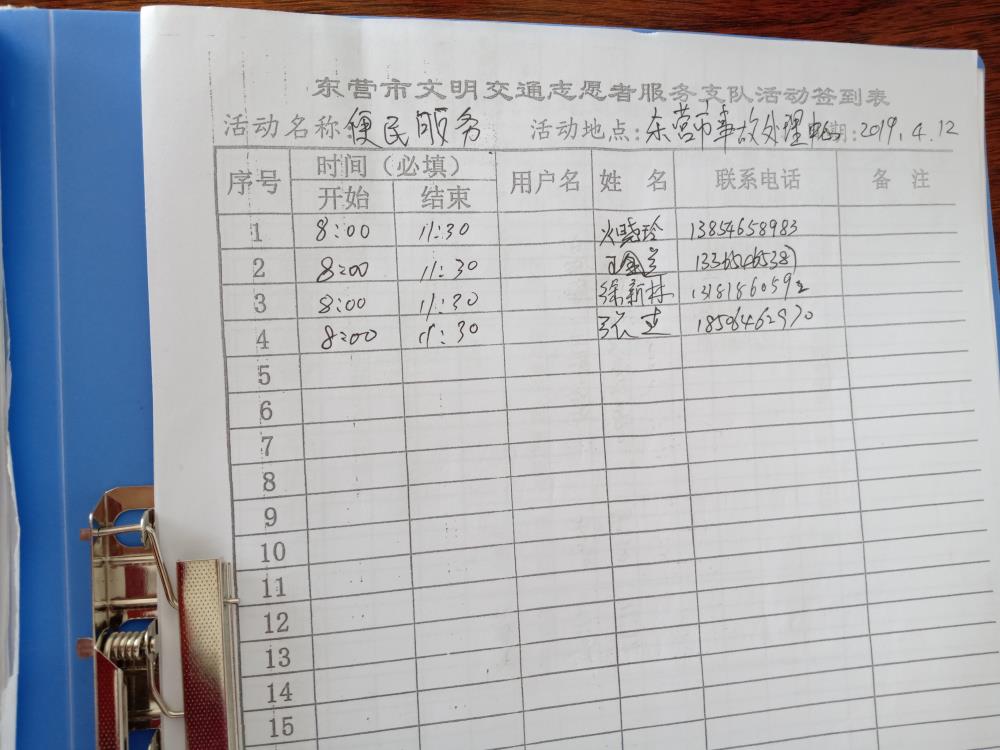 东营市文明交通志愿者服务支队活动签到表
活动名称 便民服务 活动地点:东营市事故处理 期:2019.4.12
序号 时间（必填） 用户名 姓 名 联系电话 备 注
开始 结束
1 8:00 11:30 晓玲 13854658983
2 8:00 11:30
3 8:00 11:30 徐新村
4 8:00 11:30 张
5
6
7
8
9
10
11
12
13
14
15